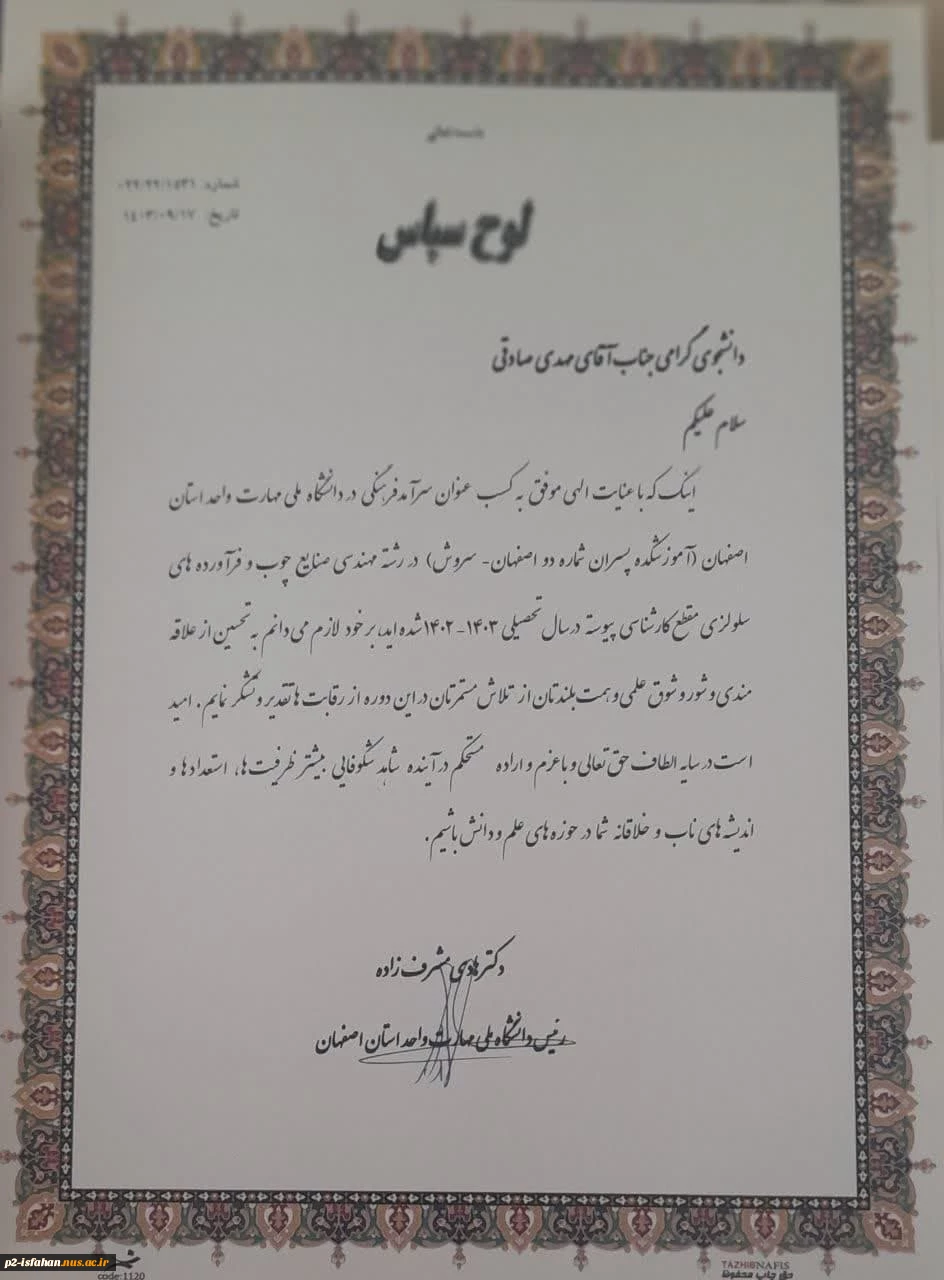 باسمه تعالی
شماره: ۰۲۲/۲۲/۱۵۳۱
تاریخ: ۱٤۰۳/۰۹/۱۷
لوح سپاس
دانشجوی گرامی جناب آقای مهدی صادقی
سلام علیکم
اینک که با عنایت الهی موفق به کسب عنوان سرآمد فرهنگی در دانشگاه ملی مهارت واحد استان
اصفهان (آموزشکده پسران شماره دو اصفهان- سروش) در رشته مهندسی صنایع چوب و فرآورده های
سلولزی مقطع کارشناسی پیوسته در سال تحصیلی ۱۴۰۳-۱۴۰۲ شده اید، بر خود لازم می دانم به تحسین از علاقه
مندی و شور و شوق علمی و همت بلندتان از تلاش مستمرتان در این دوره از رقابت ها تقدیر و تشکر نمایم. امید
است در سایه الطاف حق تعالی و با عزم و اراده مستحکم در آینده شاهد شکوفایی بیشتر ظرفیت ها، استعدادها و
اندیشه های ناب و خلاقانه شما در حوزه های علم و دانش باشیم.
دکتر هادی مشرف زاده
رئیس دانشگاه ملی مهارت واحد استان اصفهان
p2-isfahan.nus.ac.ir
code:1120
TAZHIBNAFIS
حق چاپ محفوظ